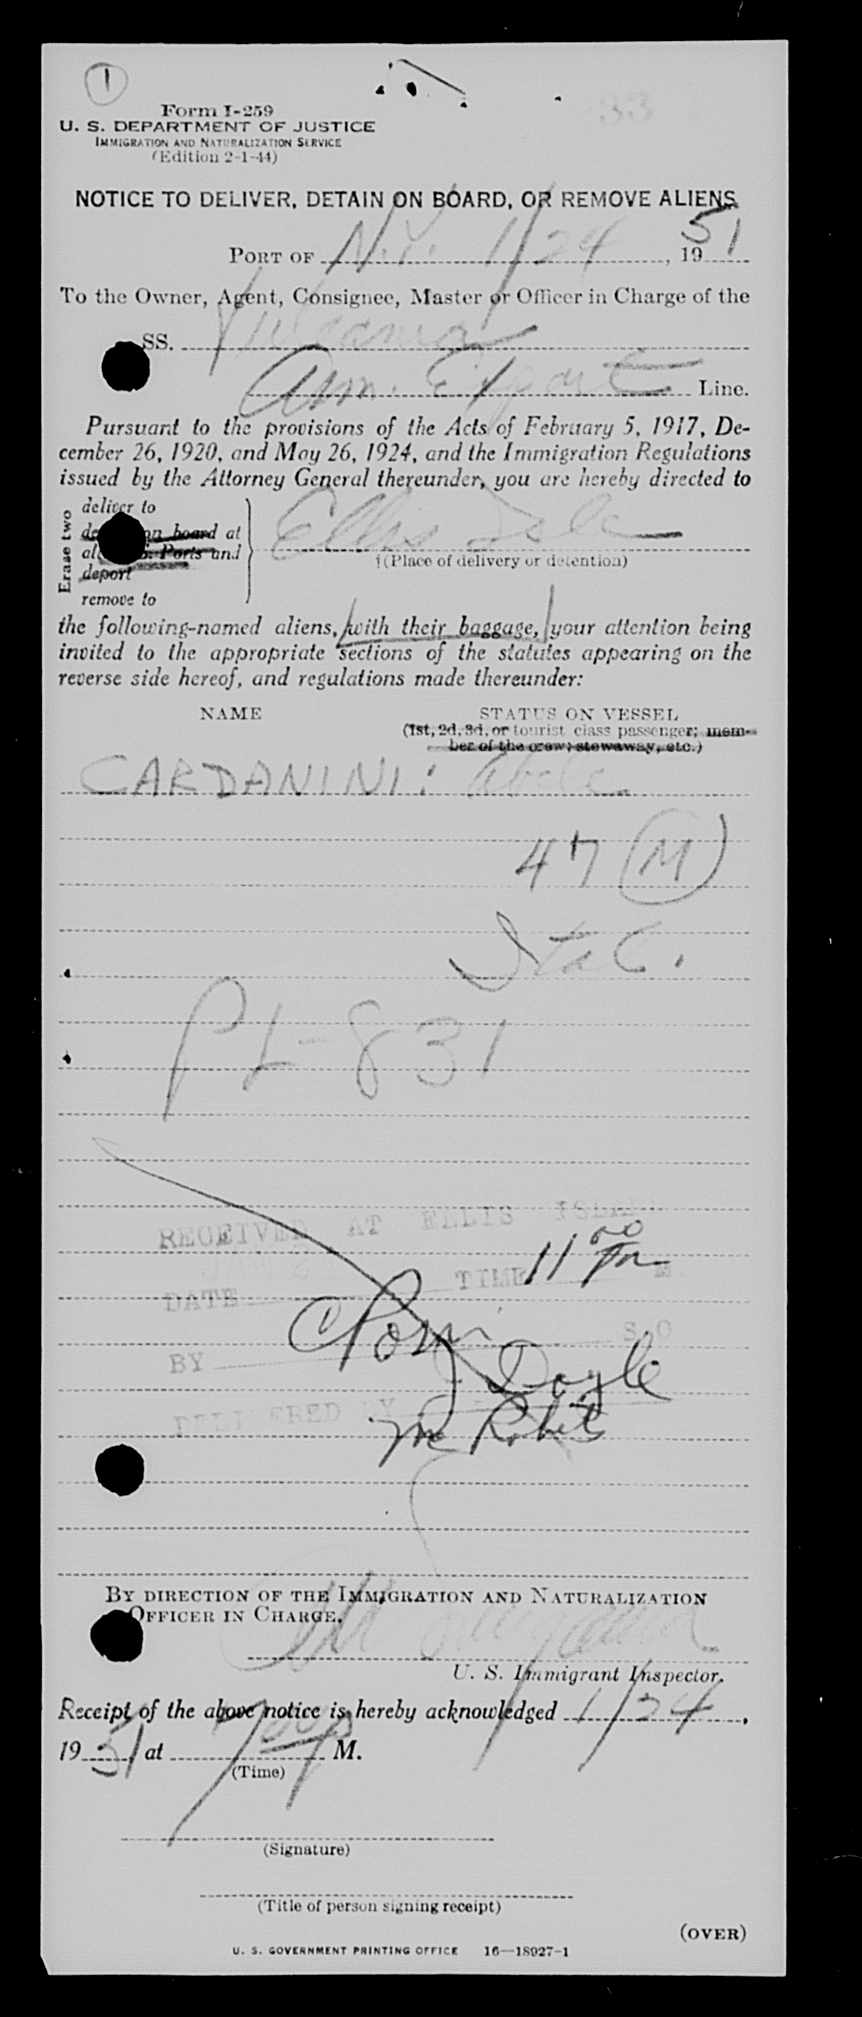 1
Form I-259
U. S. DEPARTMENT OF JUSTICE
IMMIGRATION AND NATURALIZATION SERVICE
(Edition 2-1-44)
NOTICE TO DELIVER, DETAIN ON BOARD, OR REMOVE ALIENS
PORT OF N.Y. 1/24, 1951
To the Owner, Agent, Consignee, Master or Officer in Charge of the
SS. Vulcania
Am. Export Line.
Pursuant to the provisions of the Acts of February 5, 1917, De-
cember 26, 1920, and May 26, 1924, and the Immigration Regulations
issued by the Attorney General thereunder, you are hereby directed to
Erase two
deliver to
on board at
Ports and
deport
remove to
Ellis Isle
†(Place of delivery or detention)
the following-named aliens, with their baggage, your attention being
invited to the appropriate sections of the statutes appearing on the
reverse side hereof, and regulations made thereunder:
NAME STATUS ON VESSEL
(1st, 2d, 3d, or tourist class passenger; mem-
ber of the crew; stowaway, etc.)
CARDANINI: Abele
47 M
Ital.
PL-831
RECEIVED AT ELLIS ISLAND
DATE TIME 11 00 PM M
BY S O
Doyle
DELIVERED BY
BY DIRECTION OF THE IMMIGRATION AND NATURALIZATION
OFFICER IN CHARGE.
U. S. Immigrant Inspector.
Receipt of the above notice is hereby acknowledged 1/24,
1951 at 7 00 P M.
(Time)
(Signature)
(Title of person signing receipt)
(OVER)
U. S. GOVERNMENT PRINTING OFFICE 16—18927-1